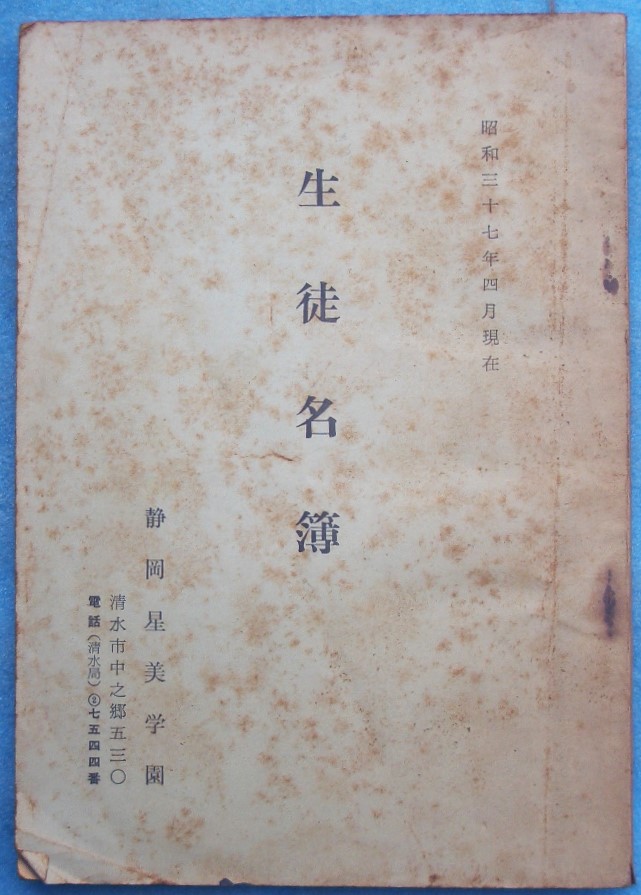 昭和三十七年四月現在
生徒名簿
静岡星美学園
清水市中之郷五三〇
電話（清水局）②七五四四番